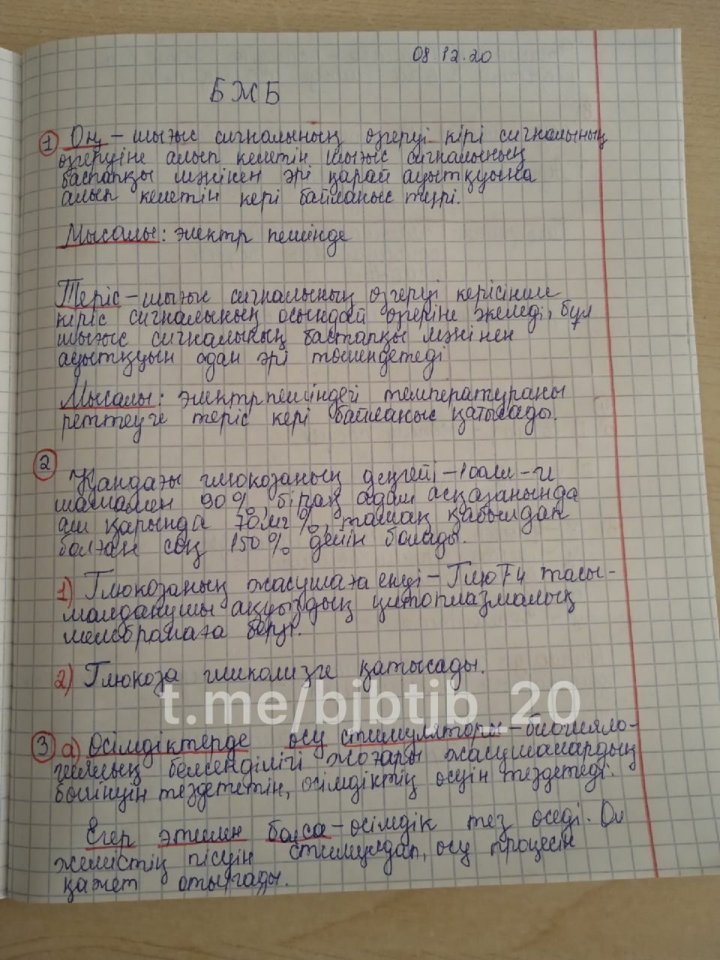 08.12.20
БЖБ
1 Оң – шығыс сигналының өзгеруі кірі сигналының
өзгеруіне алып келетін шығыс сигналының
бастапқы мәнінен әрі қарай ауытқуына
алып келетін кері байланыс түрі.
Мысалы: электр пешінде
Теріс – шығыс сигналының өзгеруі керісінше
кіріс сигналының осындай өзеріне әкеледі, бұл
шығыс сигналының бастапқы мәнінен
ауытқуын одан әрі төмендетеді
Мысалы: электр пешіндегі температураны
реттеуге теріс кері байланыс қатысады.
2 Қандағы глюкозаның деңгейі – 100мл-ге
шамамен 90%, бірақ адам асқазанында
аш қарында 70мг%, тамақ қабылдап
болған соң 150% дейін болады.
1) Глюкозаның жасушаға енуі – ГлюТ4 тасы-
малдаушы ақуыздың цитоплазмалық
мембранаға беруі.
2) Глюкоза гликолизге қатысады.
t.me/bjbtjb_20
3 а) Өсімдіктерде өсу стимуляторы – биологиялық
белсенділігі жоғары жасушалардың
бөлінуін тездететін, өсімдіктің өсуін тездетеді.
Егер этилен болса – өсімдік тез өседі. Ол
жемістің пісуін стимулдап, өсу процесін
қажет отырғады.